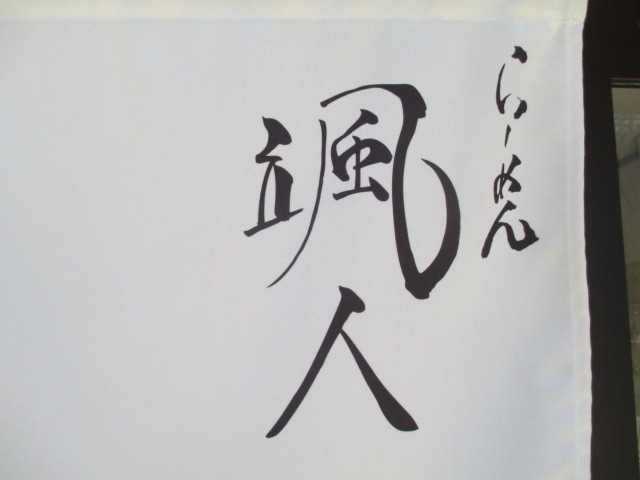 らーめん
颯人